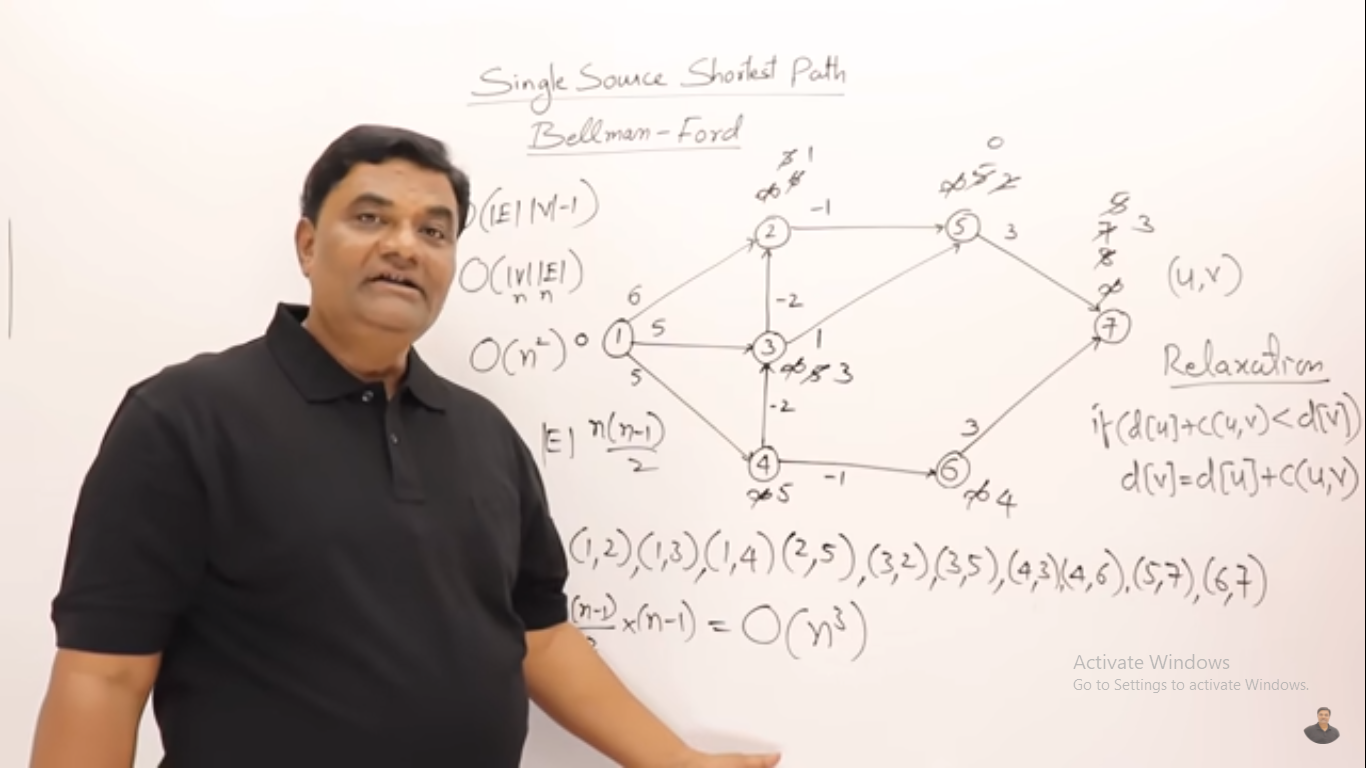 Single Source Shortest Path
Bellman-Ford
O(|E| |V|-1)
O(|V||E|)
n n
O(n²)
|E| n(n-1)/2
0 1
6
5
5
3 1
∞ 4
2
-1
-2
3
1
∞ 5 3
-2
4
∞ 5
-1
0
∞ 5 2
5
3
6
∞ 4
3
5
7 3
8
∞
7
(u,v)
Relaxation
if(d[u]+c(u,v)<d[v])
d[v]=d[u]+c(u,v)
(1,2),(1,3),(1,4)(2,5),(3,2),(3,5),(4,3)(4,6),(5,7),(6,7)
(n-1)/2 ×(n-1) = O(n³)
Activate Windows
Go to Settings to activate Windows.